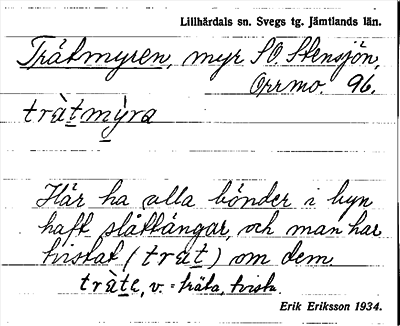 Lillhärdals sn. Svegs tg. Jämtlands län.
Trätmyren, myr SO. Stensjön,
Orrmo 96.
trä̀tmỳra
Här ha alla bönder i byn
haft slåttängar, och man har
tvistat (trät) om dem
trä̀te, v. = träta, tvista.
Erik Eriksson 1934.